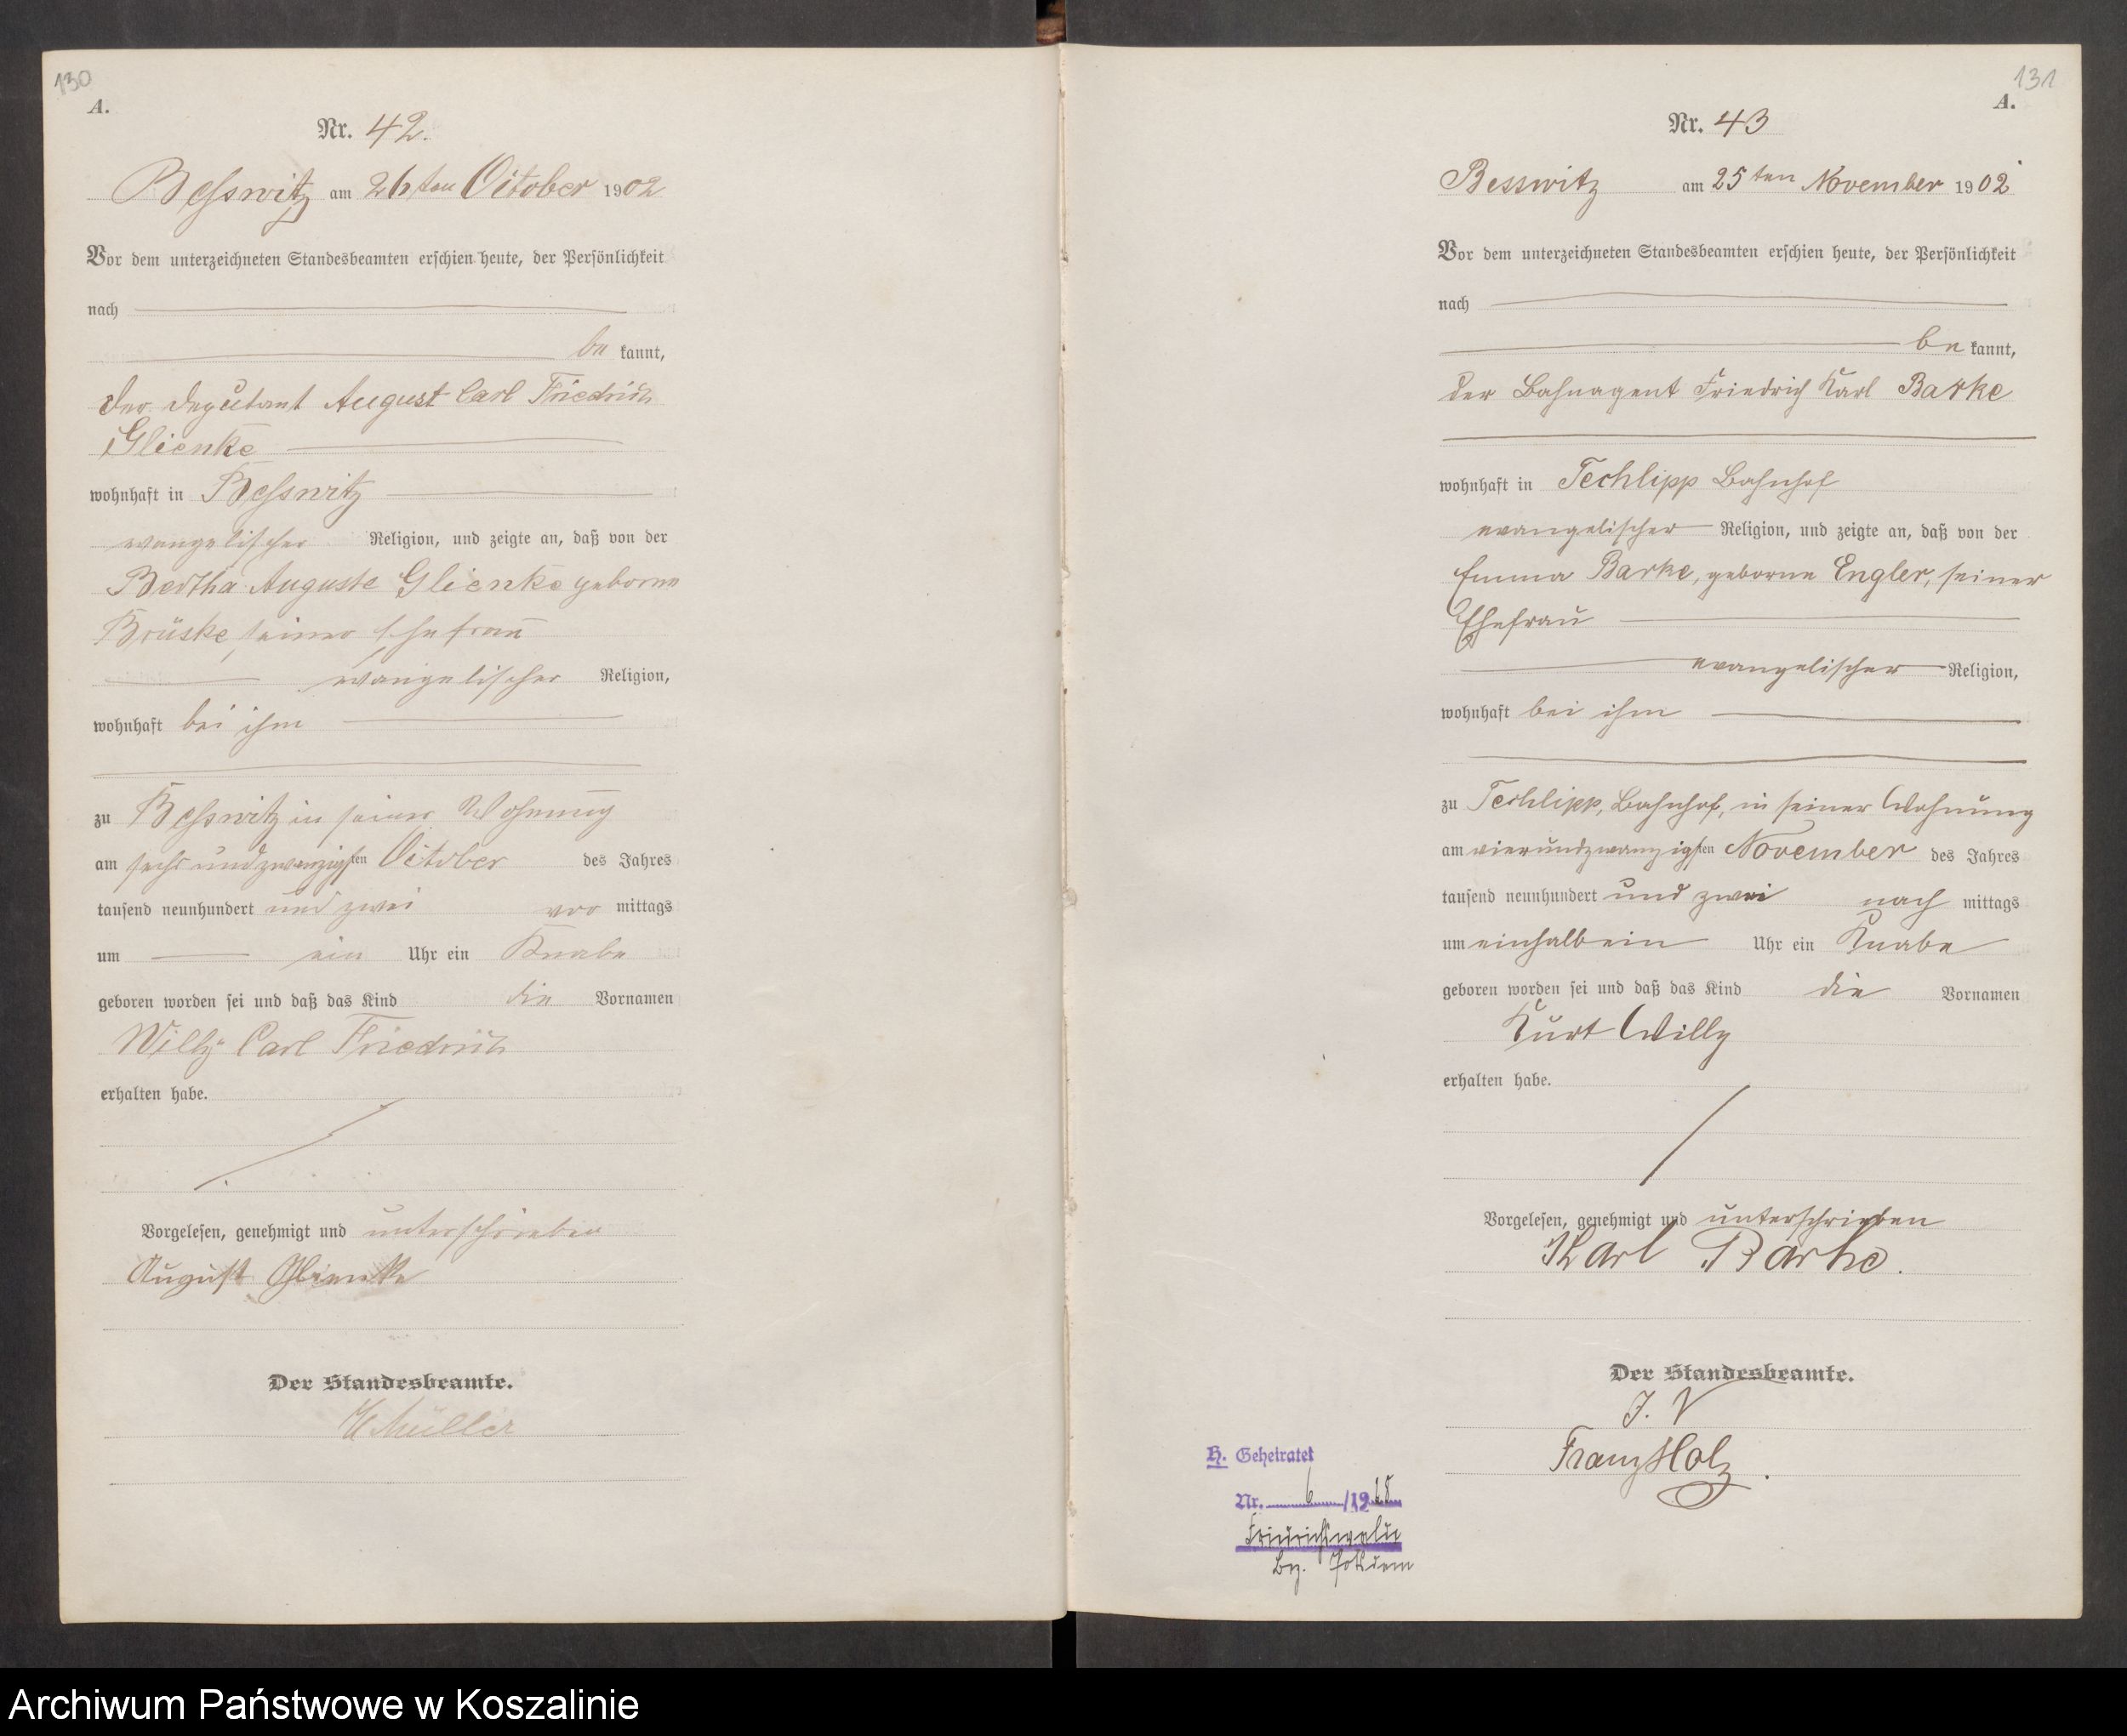 130
A.
Nr. 42.
Besswitz am 26ten October 1902
Vor dem unterzeichneten Standesbeamten erschien heute, der Persönlichkeit
nach
be kannt,
der Deputant August Carl Friedrich
Glienke
wohnhaft in Besswitz
evangelischer Religion, und zeigte an, daß von der
Bertha Auguste Glienke geborne
Brüske, seiner Ehefrau
evangelischer Religion,
wohnhaft bei ihm
zu Besswitz in seiner Wohnung
am sechs und zwanzigsten October des Jahres
tausend neunhundert und zwei vor mittags
um ein Uhr ein Knabe
geboren worden sei und daß das Kind die Vornamen
Willy Carl Friedrich
erhalten habe.
Vorgelesen, genehmigt und unterschrieben
August Glienke
Der Standesbeamte.
Müller
131
A.
Nr. 43
Besswitz am 25ten November 1902
Vor dem unterzeichneten Standesbeamten erschien heute, der Persönlichkeit
nach
be kannt,
der Bahnagent Friedrich Karl Barke
wohnhaft in Techlipp Bahnhof
evangelischer Religion, und zeigte an, daß von der
Emma Barke, geborne Engler, seiner
Ehefrau
evangelischer Religion,
wohnhaft bei ihm
zu Techlipp, Bahnhof, in seiner Wohnung
am vierundzwanzigsten November des Jahres
tausend neunhundert und zwei nach mittags
um einhalbein Uhr ein Knabe
geboren worden sei und daß das Kind die Vornamen
Kurt Willy
erhalten habe.
Vorgelesen, genehmigt und unterschrieben
Karl Barke.
Der Standesbeamte.
J. V
Franz Holz.
H. Geheiratet
Nr. 6/1928
Friedrichswalde
Bez. Potsdam
Archiwum Państwowe w Koszalinie